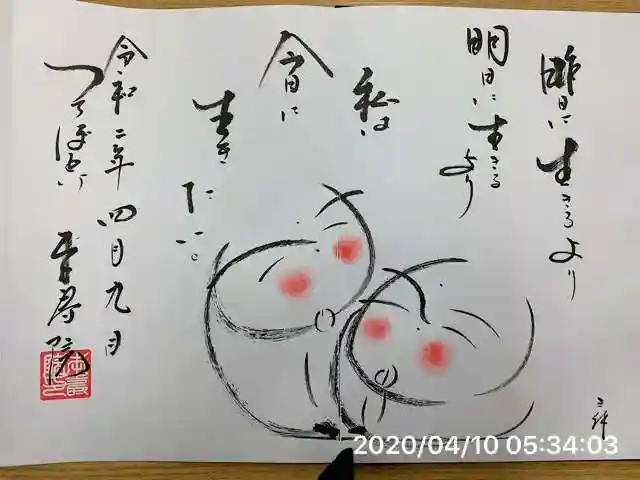 昨日に生きるより
明日に生きるより
私は
今日に
生きたい。
令和二年四月九日
2020/04/10 05:34:03